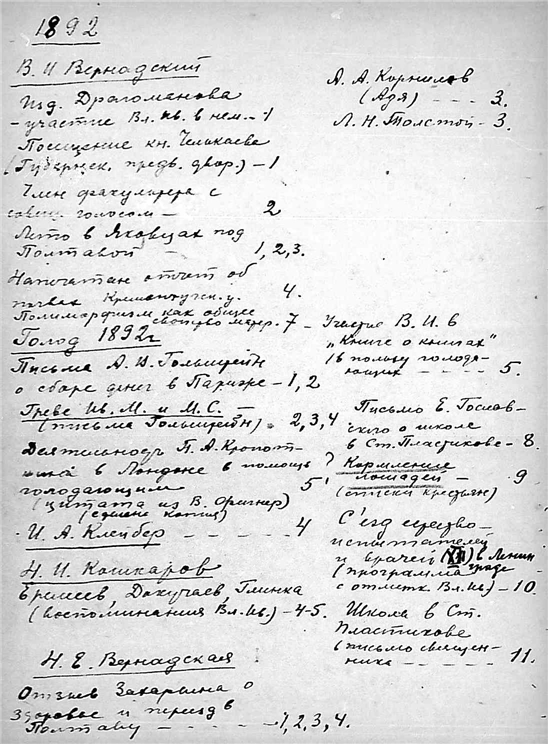 1892
В. И Вернадский
Изд. Драгоманова
– участие Вл. Ив. в нем. – 1
Посещение кн. Челокаева
(Губернск. предв. двор.) – 1
Член факультета с
совещ. голосом – 2
Лето в Яковцах под
Полтавой – 1, 2, 3.
Напечатан отчет об
почвах Кременчугск. у. 4.
Полиморфизм как общее
свойство матер. 7 –
Голод 1892г
Письма А. В. Гольштейн
о сборе денег в Париже – 1, 2
Гревс Ив. М. и М. С. –
(письма Гольштейн) – 2, 3, 4
Деятельность П. А. Кропот-
кина в Лондоне в помощь
голодающим 5
(цитата из В. Фигнер)
И. А. Клейбер – – – – 4
Н. И. Кошкаров
Еремеев Докучаев, Глинка
(воспоминания Вл. Ив.) – 4-5.
Н. Е. Вернадская
Отзыв Захарьина о
здоровье и переезд в
Полтаву – – – – 1, 2, 3, 4.
А. А. Корнилов
(Адя) – – – 3.
Л. Н. Толстой – 3.
Участие В. И. в
„Книге о книгах"
(в пользу голода-
ющих – – – – 5.
Письмо Е. Гославс-
кого о школе
в Ст. Пластикове – 8.
? Кормление
лошадей – 9
(списки крестьян)
С'езд естество-
испытателей
и врачей (XII) в Ленин
граде
(программа
с отметк Вл. Ив) – 10.
Школа в Ст.
Пластикове
(письмо священ-
ника – – – – 11.